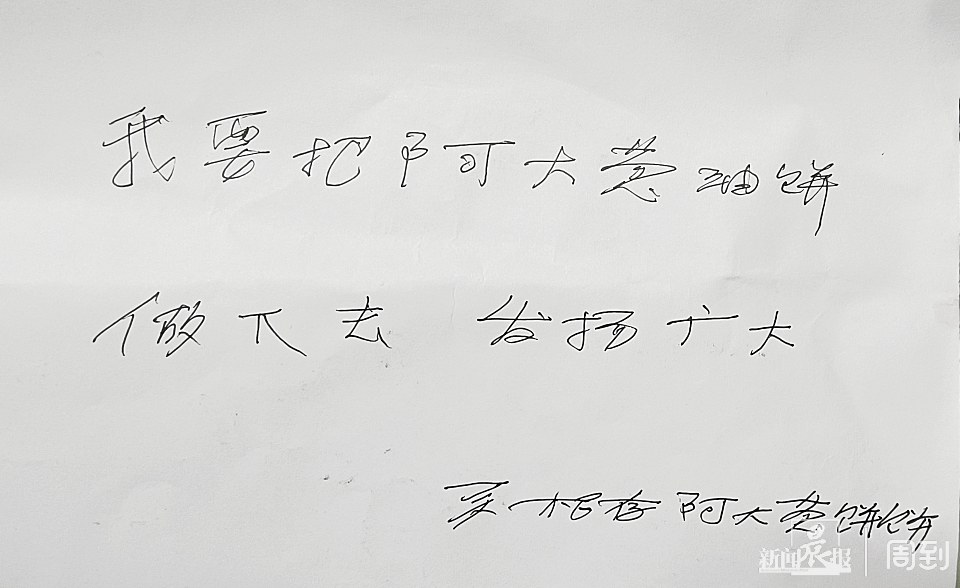 我要把阿大葱油饼
做下去 发扬广大
吴根存阿大葱饼饼
新闻晨报 周到